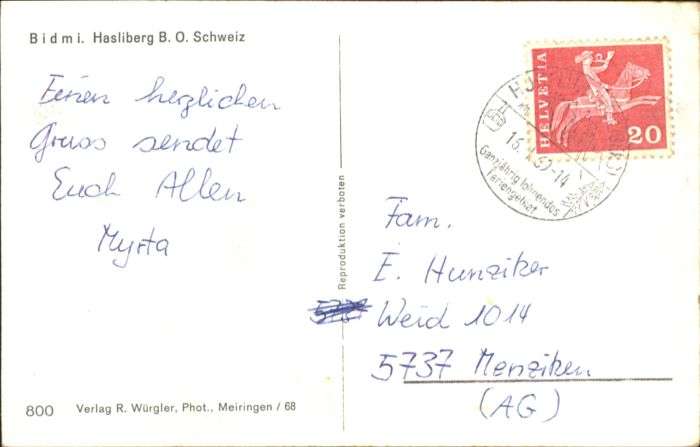 Bidmi. Hasliberg B. O. Schweiz
Einen herzlichen
Gruss sendet
Euch Allen
Myrta
Reproduktion verboten
HELVETIA
20
Ganzjährig lohnendes
Feriengebiet
Fam.
E. Hunziker
Weid 1014
5737 Menziken
(AG)
800 Verlag R. Würgler, Phot., Meiringen / 68